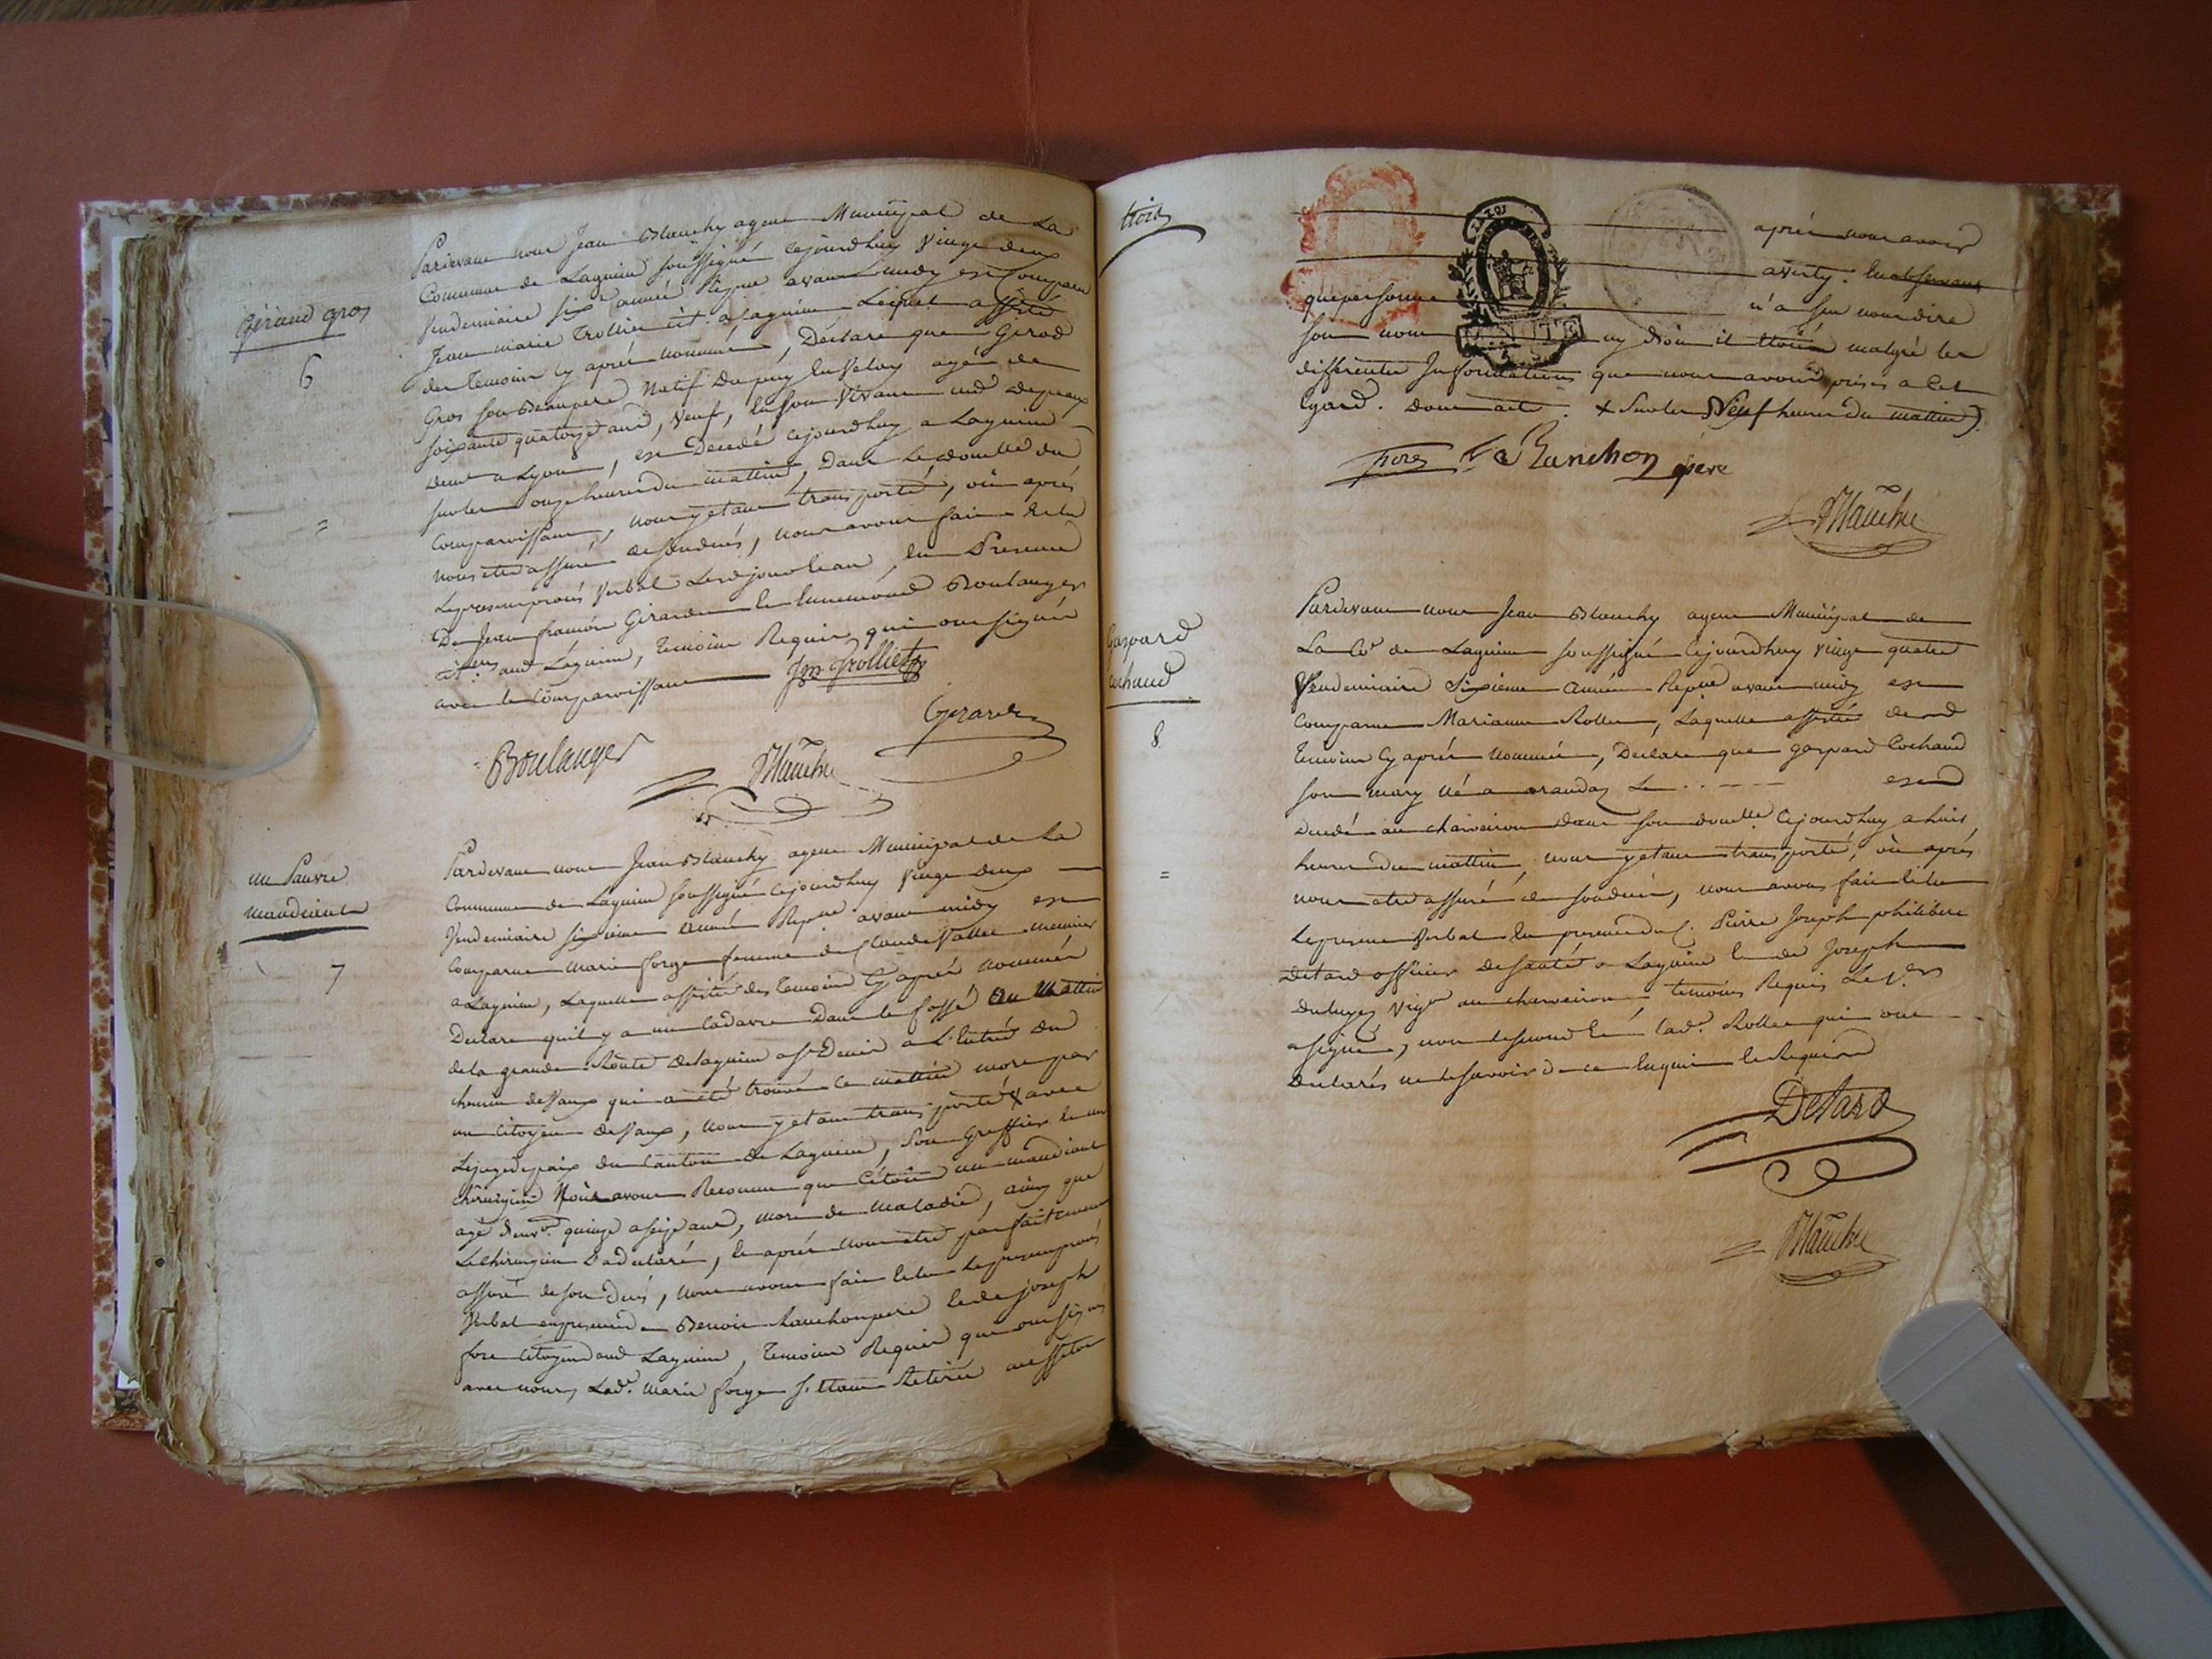 Giraud gros
6
=
Pardevant nous Jean Blanchy agent Municipal de La
Commune de Lagnieu soussigné cejourdhuy vingt deux
Vendemiaire six.e année Répue avant midy est Comparu
Jean marie Trollier cit. a Lagnieu Lequel assisté
des temoins cy aprés nommés, Déclare que Girod
Gros son Beaupere Natif Dupuy en Velay agé de
soixante quatorze ans, Veuf, en son Vivant
demt a Lyon, est Decedé cejourdhuy a Lagnieu
sur les onze heures du mattin, Dans le domille du
Comparoissant, nous y etant transporté, où aprés
nous etre assuré du deçed, nous avons fait et lu
Le present procés Verbal Lesd jour et an, en Presence
De Jean françois Girard et Boulanger
cit.ens aud Lagnieu, temoins Requis qui ont signé
avec le Comparoissant
Jm Trollier
Gerard
Boulanger
Blanchy
un Pauvre
mandiant
7
Pardevant nous Jean Blanchy agent Municipal de La
Commune de Lagnieu soussigné cejourdhuy vingt Deux
Vendemiaire sixieme année Repue avant midy est
Comparue marie forge femme de Claude Vallet meunier
a Lagnieu, Laquelle assistée des temoins Cy aprés nommés
Declare quil y a un Cadavre Dans le fossé au Mattin
de la grande Route de Lagnieu a st Denis a L'Entrée du
chemin de Vaux qui a été trouvé ce mattin mort par
un Citoyen de Vaux, nous y etant transporté x avec
Le juge de paix du Canton de Lagnieu, Son Greffier et un
chirurgien Nous avons Reconnu que C'étoit un mandiant
agé d'env.n quinze a seize ans, mort de maladie, ainsy que
Le Chirurgien L'a declaré, et aprés nous etre parfaitement
assuré de son Decés, nous avons fait et lu Le present procés
Verbal en presence de Benoit Ranchon pere et de joseph
fore Citoyens aud Lagnieu, temoins Requis qui ont signés
avec nous, Lad.e Marie forge s'etant Retirée aussitot
trois
aprés nous avoir
averty. En observant
que personne n'a sçu nous dire
son nom ny d'où il etoit malgré les
differentes Informations que nous avons prises a cet
Egard. Dont acte. x sur les Neuf heures du mattin).
fore
B Ranchon pere
Blanchy
Gaspard
Cochaud
8
=
Pardevant nous Jean Blanchy agent Municipal de
La Co.e de Lagnieu soussigné Cejourdhuy vingt quatre
Vendemiaire Sixieme année Repue avant midy est
Comparue Marianne Rollet, Laquelle assistée de nd
temoins Cy aprés nommés, Declare que gaspard Cochaud
son mary né a Le . . - - - est
decedé au charveiron dans son domille Cejourdhuy a huit
heures du mattin, nous y etant transporté, où aprés
nous etre assuré de son decés, nous avons fait et lu
Le present Verbal En presence du C. Pierre Joseph philibert
Detard officier de santé a Lagnieu et de Joseph
vigr au charveiron temoins Requis Le 1.er
a signé, non le second et lad.e Rollet qui ont
declarés ne le savoir de ce Enquis et Requis
Detard
Blanchy